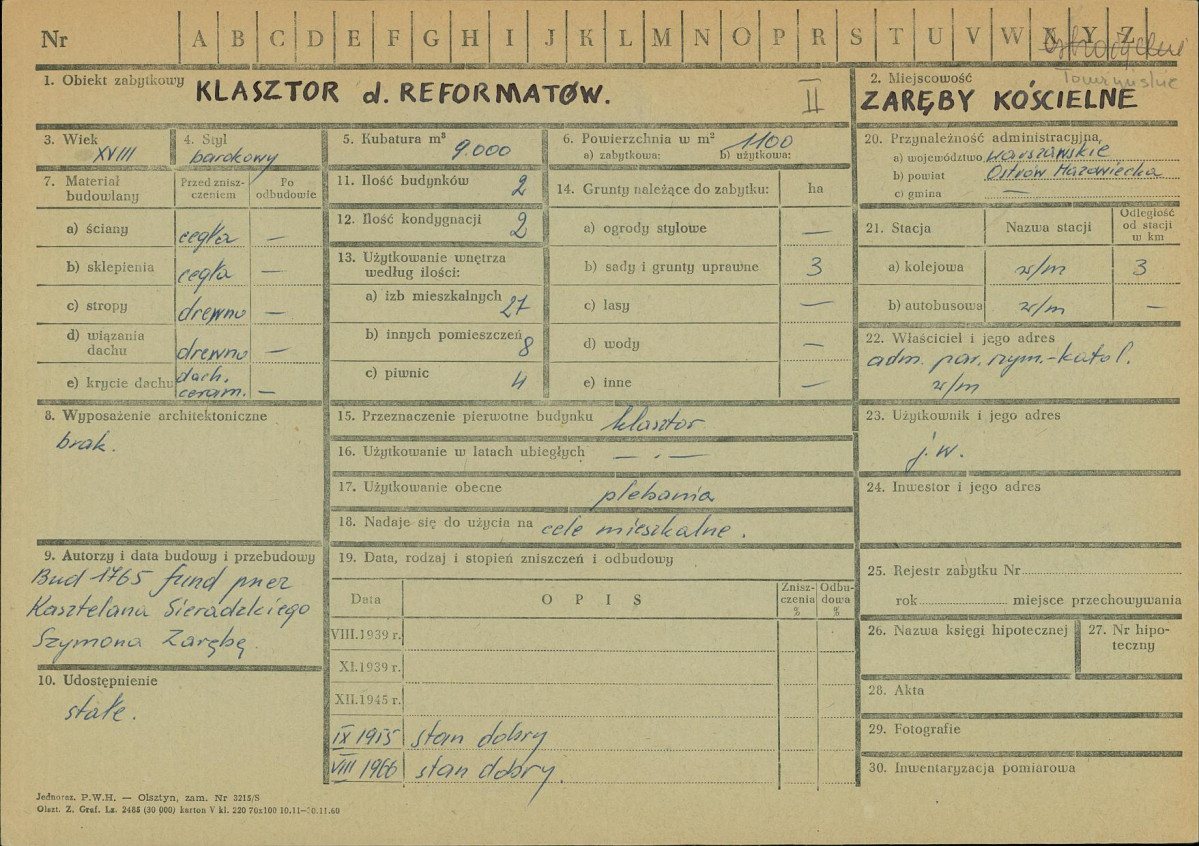 Nr A B C D E F G H I J K L M N O P R S T U V W X Y Z
1. Obiekt zabytkowy KLASZTOR d. REFORMATÓW. II
2. Miejscowość
ZARĘBY KOŚCIELNE
3. Wiek
XVIII
4. Styl
barokowy
5. Kubatura m³ 9.000
6. Powierzchnia w m² 1100
a) zabytkowa: b) użytkowa:
7. Materiał budowlany
Przed znisz-
czeniem
Po
odbudowie
a) ściany cegła —
b) sklepienia cegła —
c) stropy drewno —
d) wiązania
dachu drewno —
e) krycie dachu dach.
ceram. —
8. Wyposażenie architektoniczne
brak.
9. Autorzy i data budowy i przebudowy
Bud 1765 fund przez
Kasztelana Sieradzkiego
Szymona Zarębę.
10. Udostępnienie
stałe.
11. Ilość budynków 2
12. Ilość kondygnacji 2
13. Użytkowanie wnętrza
według ilości:
a) izb mieszkalnych 27
b) innych pomieszczeń 8
c) piwnic 4
14. Grunty należące do zabytku: ha
a) ogrody stylowe —
b) sady i grunty uprawne 3
c) lasy —
d) wody —
e) inne —
15. Przeznaczenie pierwotne budynku klasztor
16. Użytkowanie w latach ubiegłych — . —
17. Użytkowanie obecne plebania
18. Nadaje się do użycia na cele mieszkalne.
19. Data, rodzaj i stopień zniszczeń i odbudowy
Data
O P I S
Znisz-
czenia
%
Odbu-
dowa
%
VIII.1939 r.
XI.1939 r.
XII.1945 r.
IX 1915 stan dobry
VIII 1966 stan dobry.
20. Przynależność administracyjna,
a) województwo warszawskie
b) powiat Ostrów Mazowiecka
c) gmina —
21. Stacja Nazwa stacji
Odległość
od stacji
w km
a) kolejowa w/m 3
b) autobusowa w/m —
22. Właściciel i jego adres
adm. par. rzym.-katol.
w/m
23. Użytkownik i jego adres
j.w.
24. Inwestor i jego adres
25. Rejestr zabytku Nr
rok miejsce przechowywania
26. Nazwa księgi hipotecznej
27. Nr hipo-
teczny
28. Akta
29. Fotografie
30. Inwentaryzacja pomiarowa
Jednoraz. P.W.H. — Olsztyn, zam. Nr 3215/S
Olszt. Z. Graf. Lz. 2485 (30 000) karton V kl. 220 70x100 10.11—30.11.60